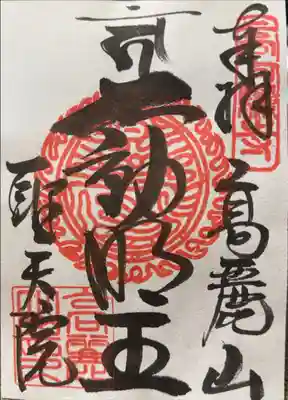 奉拝
高麗山
不動明王
聖天院